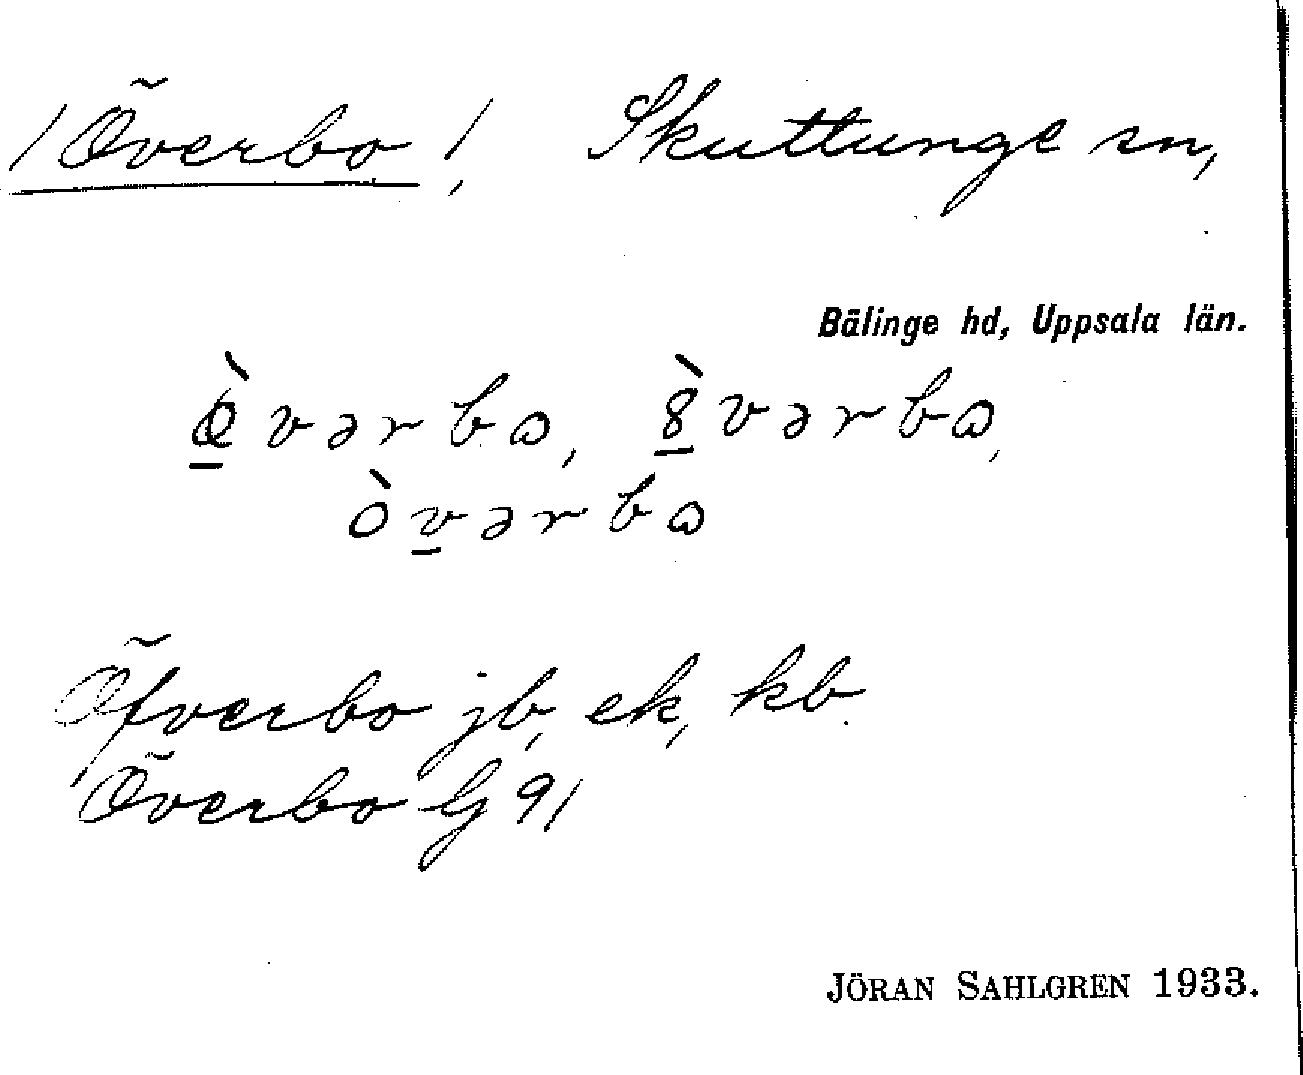 /Överbo/, Skuttunge sn,
Bälinge hd, Uppsala län.
övərbɷ, 8vərbɷ,
òvərbɷ
Öfverbo jb, ek, kb
Överbo G 91
JÖRAN SAHLGREN 1933.